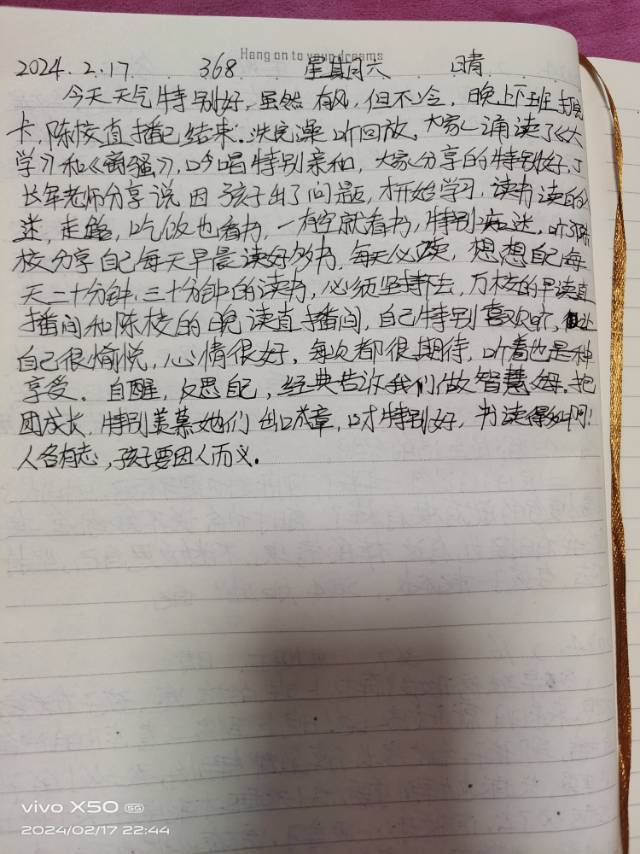 Hang on to your dreams
2024.2.17 368 星期六 晴
今天天气特别好,虽然有风,但不冷,晚上下班打完
卡,陈校直播已结束.洗完澡听回放.大家一诵读了《大
学》和《离骚》,吟唱特别亲和,大家分享的特别好,丁
长军老师分享说因孩子出了问题,才开始学习,读书读的入
迷,走路,吃饭也看书,一有空就看书,特别痴迷,听陈
校分享自己每天早晨读好多书,每天必读,想想自己每
天二十分钟,三十分钟的读书,必须坚持下去,万校的早读直
播间和陈校的晚读直播间,自己特别喜欢听,让
自己很愉悦,心情很好,每次都很期待,听着也是种
享受.自醒,反思自己,经典告诉我们做智慧母.把
团成长,特别羡慕她们出口成章,口才特别好,书读得如何!
人各有志,孩子要因人而义.
vivo X50 5G
2024/02/17 22:44